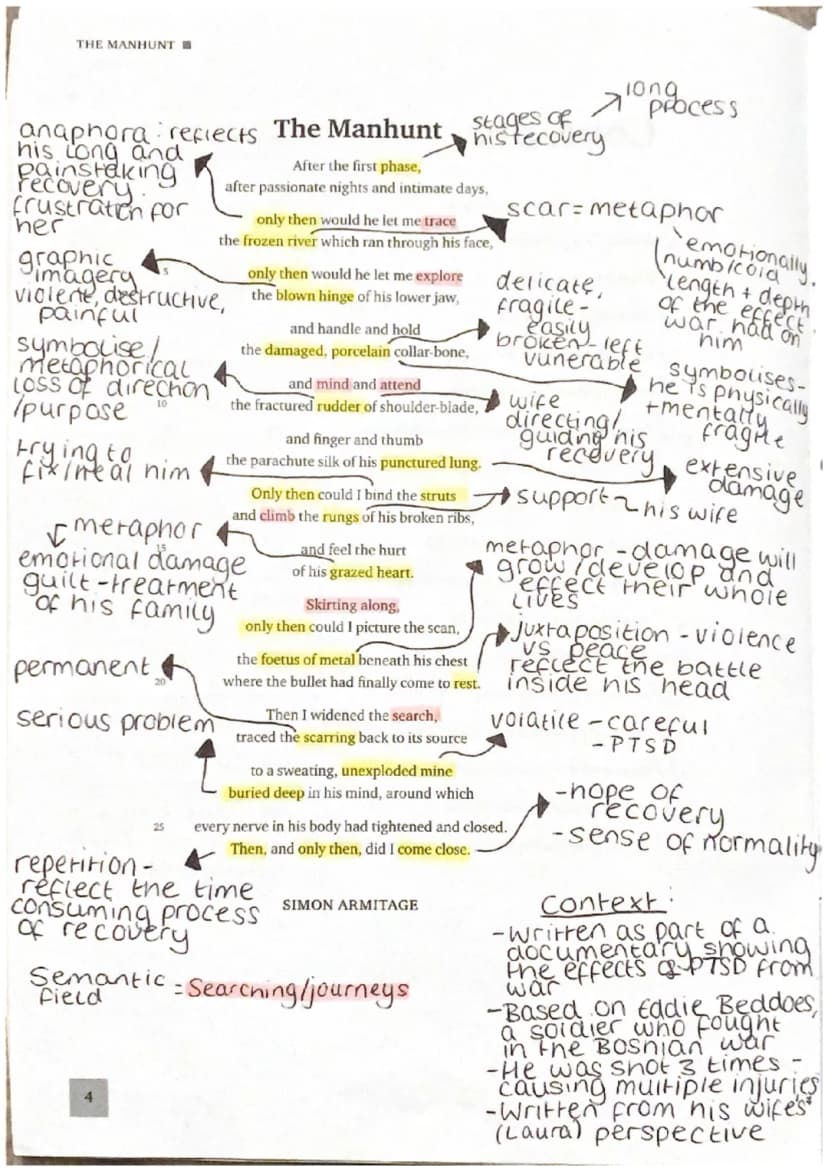 THE MANHUNT
The Manhunt
After the first phase,
after passionate nights and intimate days,
only then would he let me trace
the frozen river which ran through his face,
5
only then would he let me explore
the blown hinge of his lower jaw,
and handle and hold
the damaged, porcelain collar-bone,
and mind and attend
10
the fractured rudder of shoulder-blade,
and finger and thumb
the parachute silk of his punctured lung.
Only then could I bind the struts
and climb the rungs of his broken ribs,
15
and feel the hurt
of his grazed heart.
Skirting along,
only then could I picture the scan,
the foetus of metal beneath his chest
20
where the bullet had finally come to rest.
Then I widened the search,
traced the scarring back to its source
to a sweating, unexploded mine
buried deep in his mind, around which
25
every nerve in his body had tightened and closed.
Then, and only then, did I come close.
SIMON ARMITAGE
anaphora : reflects
his long and
painstaking
recovery.
frustration for
her
graphic
imagery
violent, destructive,
painful
symbolise/
metaphorical
loss of direction
/purpose
trying to
fix/heal him
metaphor
emotional damage
guilt - treatment
of his family
permanent
serious problem
repetition -
reflect the time
consuming process
of recovery
Semantic
field
= Searching/journeys
stages of
his recovery
long
process
scar = metaphor
emotionally
numb/cold
length + depth
of the effect
war had on
him
delicate,
fragile -
easily
broken - left
vunerable
symbolises -
he is physically
+ mentally
fragile
wife
directing/
guiding his
recovery
extensive
damage
support ~ his wife
metaphor - damage will
grow/develop and
effect their whole
lives
juxtaposition - violence
vs peace
reflect the battle
inside his head
volatile - careful
- PTSD
- hope of
recovery
- sense of normality
Context :
- Written as part of a
documentary showing
the effects of PTSD from
war
- Based on Eddie Beddoes,
a soldier who fought
in the Bosnian war
- He was shot 3 times -
causing multiple injuries
- Written from his wifes*
(Laura) perspective
4